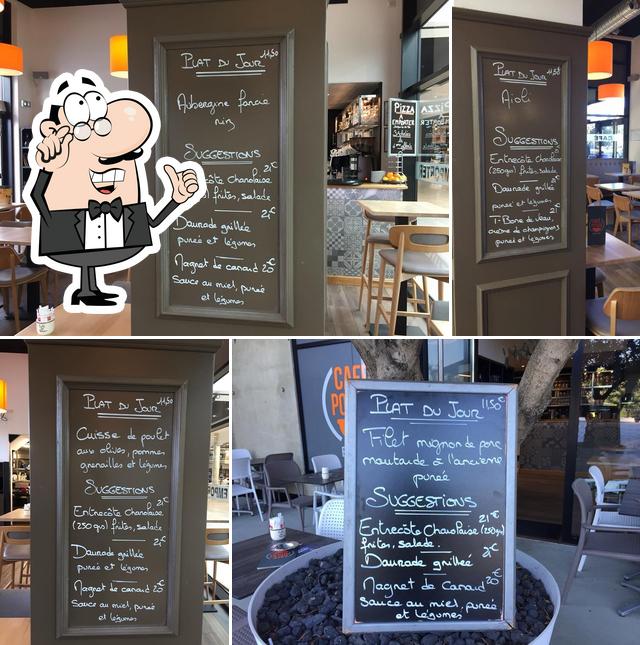 PLAT DU JOUR 11,50
Aubergine farcie
riz
SUGGESTIONS
21€
côte charolaise
frites, salade
21€
Daurade grillée
purée et légumes
Magret de canard 20€
Sauce au miel, purée
et légumes
PIZZA
A
EMPORTER
PLAT DU JOUR 11,50
Aïoli
SUGGESTIONS
Entrecôte charolaise
(250grs) frites, salade
Daurade grillée
purée et légumes
21€
T-Bone de veau,
crème de champignons
purée et légumes
PLAT DU JOUR 11,50
Cuisse de poulet
aux olives, pommes
grenailles et légumes
SUGGESTIONS
21€
Entrecôte charolaise
(250grs) frites, salade
21€
Daurade grillée
purée et légumes
Magret de canard 20€
Sauce au miel, purée
et légumes
CAFE
PO
PLAT DU JOUR 11,50€
Filet mignon de porc
moutarde à l'ancienne
purée
SUGGESTIONS
21€
Entrecôte Charolaise (250grs)
frites, salade.
Daurade grillée
Magret de Canard 20€
Sauce au miel, purée
et légumes